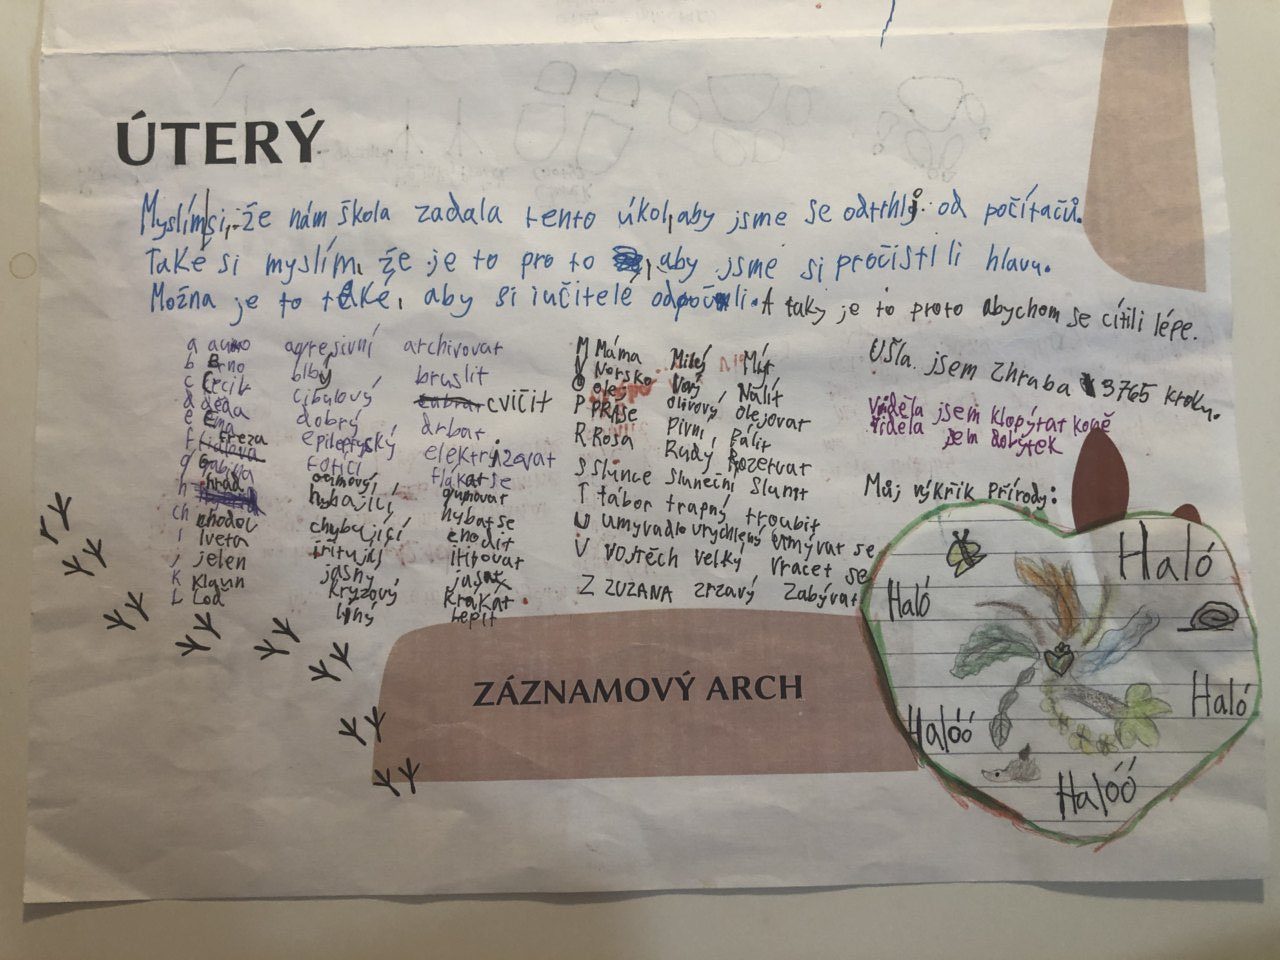 ÚTERÝ
Myslím si, že nám škola zadala tento úkol, aby jsme se odtrhly od počítačů.
Také si myslím, že je to pro to, aby jsme si pročistili hlavu.
Možna je to také, aby si učitelé odpočali. A taky je to proto abychom se cítili lépe.
a auto agresivní archivovat
b Brno blbý bruslit
c Cecil cibulový cvičit
d děda dobrý drbat
e Ema epileptyský elektrizovat
f Freza fotící flákat se
g Gabina gumový gumovat
h hrad hýbající hýbat se
ch chodov chybující chodit
i Iveta iritující iritovat
j jelen jasny
k Klaun Kryzový Krákat
L Loď líný Lepit
M Máma Milý Mýt
N Norsko Nový Nalít
O olej olivový olejovat
P PRASE Pivní Pálit
R Rosa Rudý Rozervat
S Slunce Sluneční Slunit
T tábor trapný troubit
U umyvadlo urychlený umývat se
V VOJTĚCH velký Vracet se
Z ZUZANA zrzavý Zabývat
Ušla jsem zhruba 3765 kroků.
Viděla jsem klopýtat koně
Viděla jsem dobytek
Můj výkřik přírody:
Haló
Haló
Haló
Halóó
Halóó
ZÁZNAMOVÝ ARCH